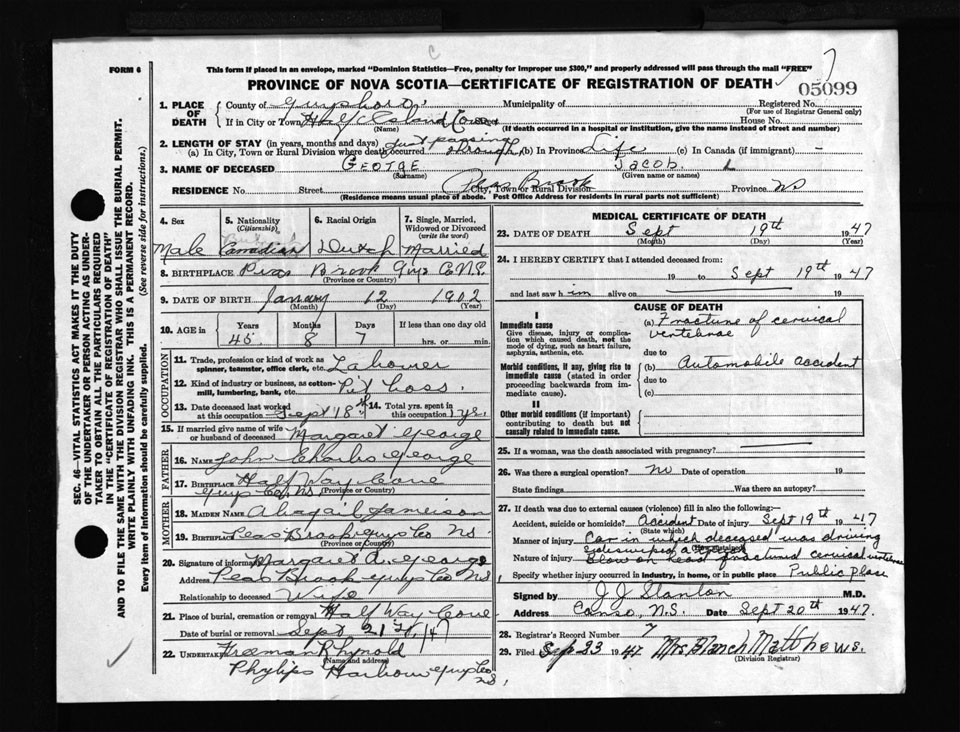 FORM 6
This form if placed in an envelope, marked "Dominion Statistics—Free, penalty for improper use $300," and properly addressed will pass through the mail "FREE"
PROVINCE OF NOVA SCOTIA—CERTIFICATE OF REGISTRATION OF DEATH
05099
1. PLACE OF DEATH
County of
Municipality of
Registered No.
(For use of Registrar General only)
If in City or Town
House No.
(Name) (If death occurred in a hospital or institution, give the name instead of street and number)
2. LENGTH OF STAY (in years, months and days) Just passing
(a) In City, Town or Rural Division where death occurred through (b) In Province Life (c) In Canada (if immigrant) -
3. NAME OF DECEASED GEORGE JACOB. L
(Surname) (Given name or names)
RESIDENCE No. Street Brook Province NS
City, Town or Rural Division
(Residence means usual place of abode. Post Office Address for residents in rural parts not sufficient)
4. Sex
Male
5. Nationality (Citizenship)
Canadian
6. Racial Origin
Dutch
7. Single, Married, Widowed or Divorced (write the word)
Married
8. BIRTHPLACE Brook Guys Co N.S.
(Province or Country)
9. DATE OF BIRTH January 12 1902
(Month) (Day) (Year)
10. AGE in
Years 45
Months 8
Days 7
If less than one day old
hrs. or min.
OCCUPATION
11. Trade, profession or kind of work as spinner, teamster, office clerk, etc. Labourer
12. Kind of industry or business, as cotton-mill, lumbering, bank, etc. Pit
13. Date deceased last worked at this occupation Sept 18th
14. Total yrs. spent in this occupation yrs.
15. If married give name of wife or husband of deceased Margaret George
FATHER
16. NAME John Charles George
17. Half Way Cove
Guys Co. NS
(Province or Country)
MOTHER
18. MAIDEN NAME Abagail Jamieson
19. BIRTHPLACE Peas Brook Guys Co NS
(Province or Country)
20. Signature of informant Margaret A. George
Address Peas Brook Guys Co NS
Relationship to deceased Wife
21. Place of burial, cremation or removal Half Way Cove
Date of burial or removal Sept 21st, 47
22. UNDERTAKER Freeman Rhynold
(Name and address)
Phylips Harbour Guys Co
NS.
MEDICAL CERTIFICATE OF DEATH
23. DATE OF DEATH Sept 19th 1947
(Month) (Day) (Year)
24. I HEREBY CERTIFY that I attended deceased from:
19 to Sept 19th 1947
and last saw him alive on 19
CAUSE OF DEATH
I
Immediate cause
Give disease, injury or complication which caused death, not the mode of dying, such as heart failure, asphyxia, asthenia, etc.
(a) Fracture of cervical
vertebrae
due to
Morbid conditions, if any, giving rise to immediate cause (stated in order proceeding backwards from immediate cause).
(b) Automobile accident
due to
(c)
II
Other morbid conditions (if important) contributing to death but not causally related to immediate cause.
25. If a woman, was the death associated with pregnancy?
26. Was there a surgical operation? No Date of operation 19
State findings Was there an autopsy?
27. If death was due to external causes (violence) fill in also the following:—
Accident, suicide or homicide? Accident Date of injury Sept 19th 1947
(State which)
Manner of injury Car in which deceased was driving
sideswiped a
Nature of injury Blow on head fractured cervical vertebrae
Specify whether injury occurred in industry, in home, or in public place Public place
Signed by J J Stanton M.D.
Address Canso, N.S. Date Sept 20th 1947.
28. Registrar's Record Number 7
29. Filed Sep 23 1947 Mrs Blanch Matthews.
(Division Registrar)
SEC. 46—VITAL STATISTICS ACT MAKES IT THE DUTY
OF THE UNDERTAKER OR PERSON ACTING AS UNDER-
TAKER TO OBTAIN ALL THE PARTICULARS REQUIRED
IN THE "CERTIFICATE OF REGISTRATION OF DEATH"
AND TO FILE THE SAME WITH THE DIVISION REGISTRAR WHO SHALL ISSUE THE BURIAL PERMIT.
WRITE PLAINLY WITH UNFADING INK. THIS IS A PERMANENT RECORD.
Every item of Information should be carefully supplied. (See reverse side for instructions.)